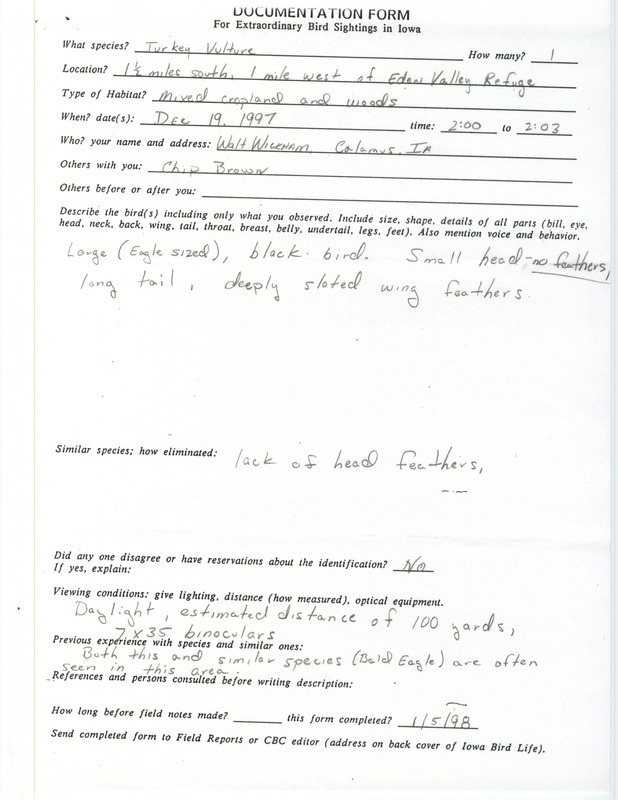 DOCUMENTATION FORM
For Extraordinary Bird Sightings in Iowa
What species? Turkey Vulture How many? 1
Location? 1½ miles south, 1 mile west of Eden Valley Refuge
Type of Habitat? Mixed cropland and woods
When? date(s): Dec 19, 1997 time: 2:00 to 2:03
Who? your name and address: Walt Wickham, Calamus, IA
Others with you: Chip Brown
Others before or after you:
Describe the bird(s) including only what you observed. Include size, shape, details of all parts (bill, eye,
head, neck, back, wing, tail, throat, breast, belly, undertail, legs, feet). Also mention voice and behavior.
Large (Eagle sized), black bird. Small head-no feathers,
long tail, deeply sloted wing feathers.
Similar species; how eliminated: lack of head feathers,
Did any one disagree or have reservations about the identification? No
If yes, explain:
Viewing conditions: give lighting, distance (how measured), optical equipment.
Daylight, estimated distance of 100 yards,
7 x 35 binoculars
Previous experience with species and similar ones:
Both this and similar species (Bald Eagle) are often
seen in this area.
References and persons consulted before writing description:
How long before field notes made? this form completed? 1/5/98
Send completed form to Field Reports or CBC editor (address on back cover of Iowa Bird Life).